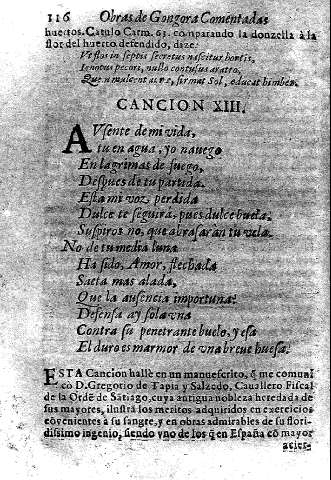 116 Obras de Gongora Comentadas
huertos. Catulo Carm. 63. comparando la donzella à la
flor del huerto defendido, dize:
Vt flos in septis secretus nascitur hortis,
Ignotus pecori, nullo contusus aratro,
Quem mulcent auræ, firmat Sol, educat himber.
CANCION XIII.
AVsente de mi vida,
tu en agua, yo nauego
En lagrimas de fuego,
Despues de tu partida.
Esta mi voz, perdida
Dulce te seguira, pues dulce buela.
Suspiros no, que abrasaràn tu vela.
No de tu media luna
Ha sido, Amor, flechada
Saeta mas alada,
Que la ausencia importuna:
Defensa ay sola vna
Contra su penetrante buelo, y esa
El duro es marmor de vna breue huesa.
ESTA Cancion hallè en un manuescrito, q̃ me comuni
cò D. Gregorio de Tapia y Salzedo, Cauallero Fiscal
de la Ordẽ de Sãtiago, cuya antigua nobleza heredada de
sus mayores, ilustrà los meritos adquiridos en exercicios
cõvenientes à su sangre, y en obras admirables de su flori-
dissimo ingenio, siendo vno de los q̃ en España cõ mayor
acier-